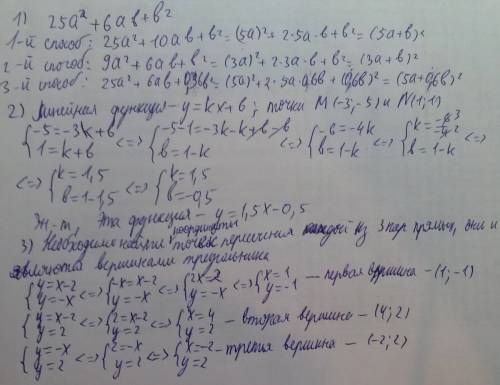 1) 25a² + 6ab + b²
1-й способ: 25a² + 10ab + b² = (5a)² + 2·5a·b + b² = (5a+b)²
2-й способ: 9a² + 6ab + b² = (3a)² + 2·3a·b + b² = (3a+b)²
3-й способ: 25a² + 6ab + 0,36b² = (5a)² + 2·5a·0,6b + (0,6b)² = (5a+0,6b)²
2) Линейная функция - y = kx + b; точки M(-3;-5) и N(1;1)
{-5=-3k+b 1=k+b <=> {-5-1=-3k-k+b-b b=1-k <=> {-6=-4k b=1-k <=> {k=-6³/-4² b=1-k <=>
<=> {k=1,5 b=1-1,5 <=> {k=1,5 b=-0,5
Эта функция - y=1,5x-0,5
3) Необходимо найти координаты точек пересечения каждой из 3 пар прямых, они и
являются вершинами треугольника
{y=x-2 y=-x <=> {-x=x-2 y=-x <=> {2x=2 y=-x <=> {x=1 y=-1 - первая вершина - (1;-1)
{y=x-2 y=2 <=> {2=x-2 y=2 <=> {x=4 y=2 - вторая вершина - (4;2)
{y=-x y=2 <=> {2=-x y=2 <=> {x=-2 y=2 - третья вершина - (-2;2)